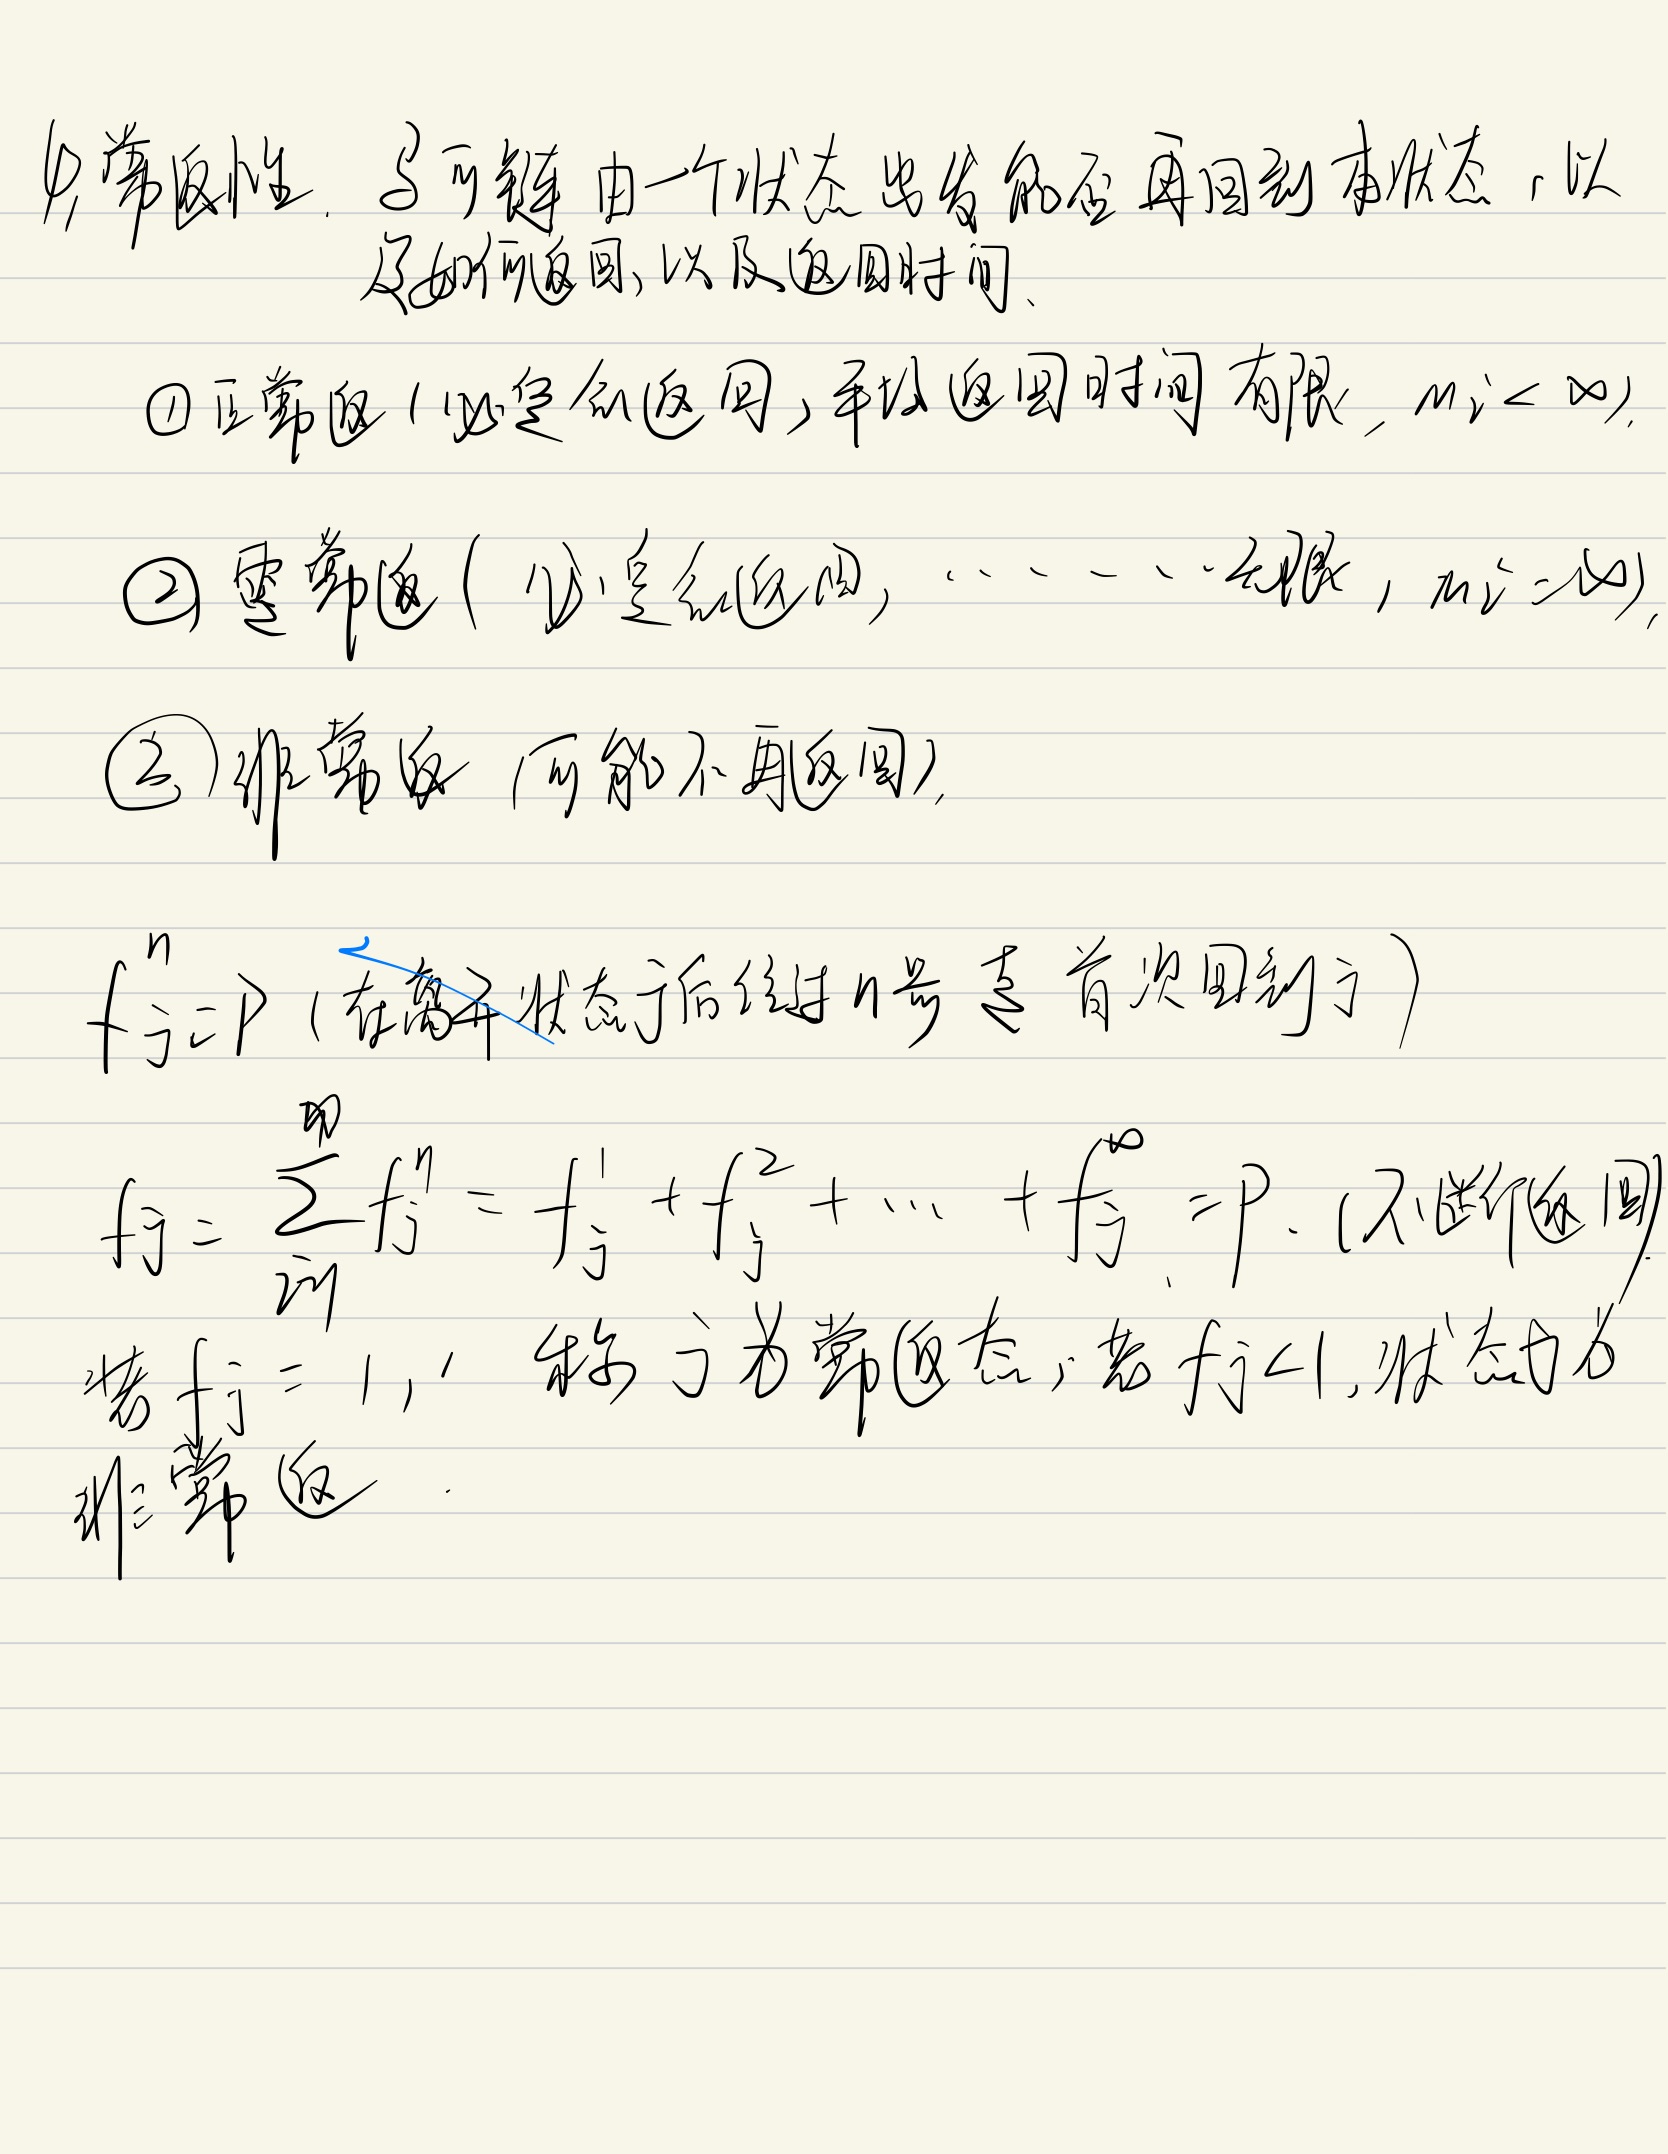 4, 常返性. 马可链由一个状态出发能否再回到本状态, 以
及如何返回, 以及返回时间.
① 正常返 (必定会返回, 平均返回时间有限, mi < ∞).
② 零常返 (必定会返回, ...... 无限, mi = ∞).
③ 非常返 (可能不再返回).
f_j^n = P (在离开状态j后经过n步 首次回到j)
f_j = Σ f_j^n = f_j^1 + f_j^2 + ... + f_j^∞ = P. (不断返回)
若 f_j = 1, 称 j 为常返态, 若 f_j < 1, 状态为
非常返.